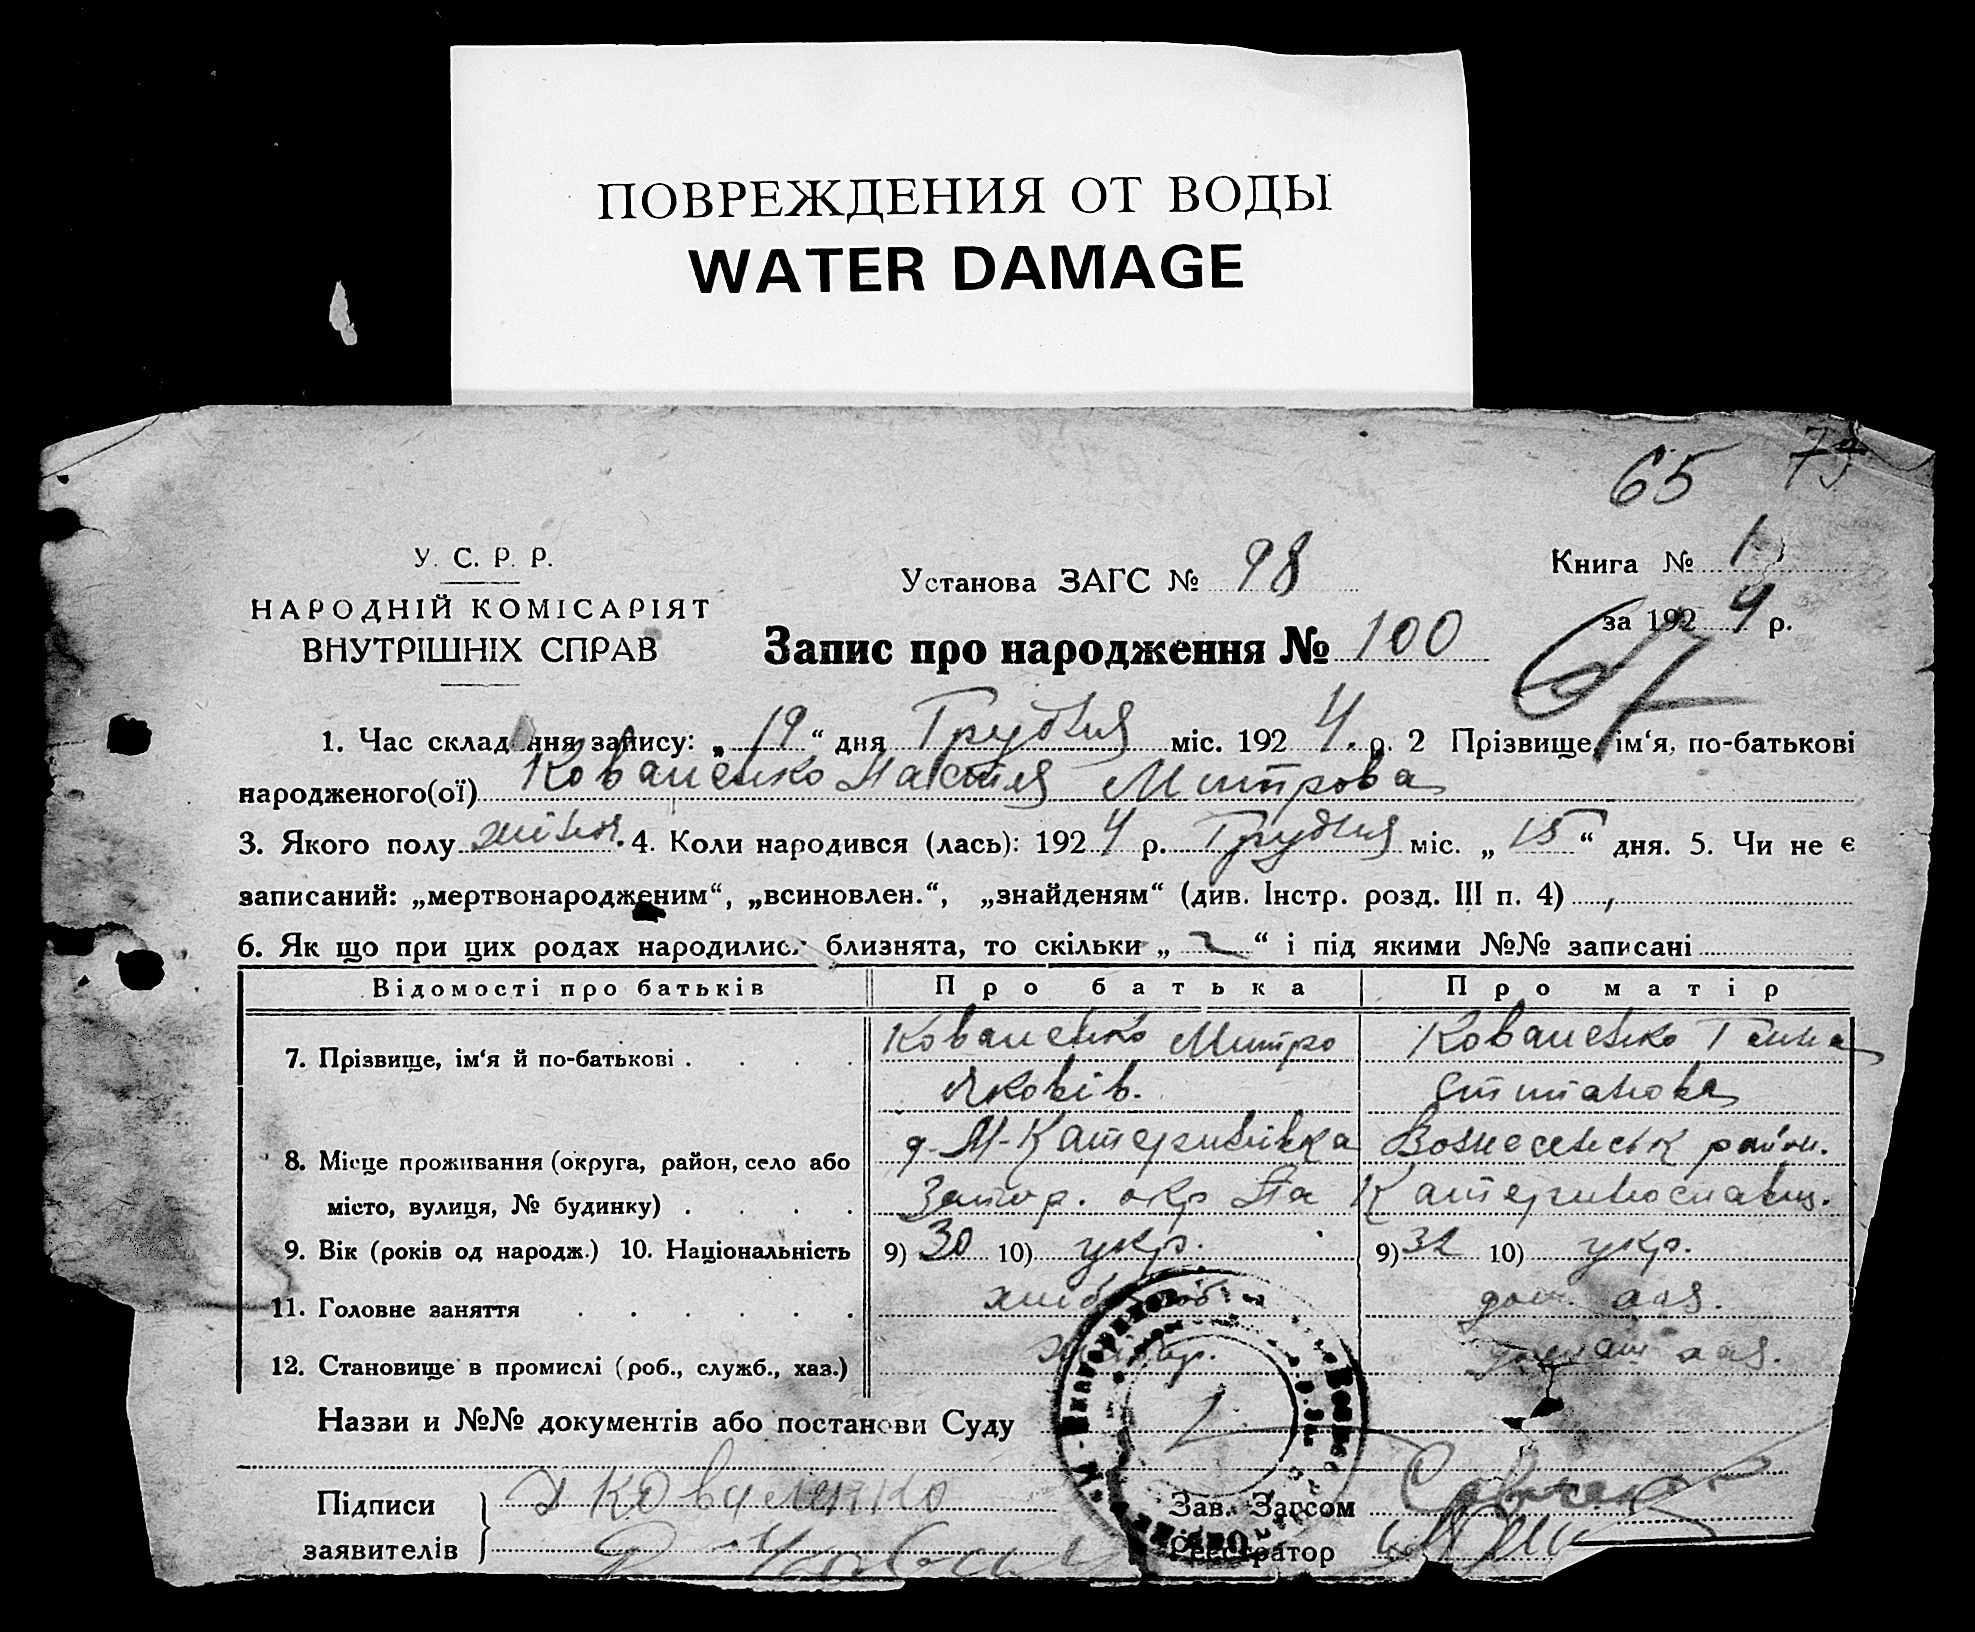 ПОВРЕЖДЕНИЯ ОТ ВОДЫ
WATER DAMAGE
65 73
У. С. Р. Р.
НАРОДНІЙ КОМІСАРІЯТ
ВНУТРІШНІХ СПРАВ
Установа ЗАГС № 98
Книга № 1
за 1924 р.
Запис про народження № 100
67
1. Час складання запису: „19“ дня Грудня міс. 1924. р. 2 Прізвище, ім‘я, по-батькові
народженого(ої) Коваленко Настя Митрова
3. Якого полу жіноч. 4. Коли народився (лась): 1924 р. Грудня міс. „15“ дня. 5. Чи не є
записаний: „мертвонародженим“, „всиновлен.“, „знайденям“ (див. Інстр. розд. III п. 4)
6. Як що при цих родах народились близнята, то скільки „ “ і під якими №№ записані
Відомості про батьків Про батька Про матір
7. Прізвище, ім‘я й по-батькові . . . . Коваленко Митро Коваленко Ганна
Яковів. Степанова
8. Місце проживання (округа, район, село або д. М-Катеринівка Вознесенськ район.
місто, вулиця, № будинку) . . . . Запор. окр На Катеринославщ.
9. Вік (років од народж.) 10. Національність 9) 30 10) укр. 9) 32 10) укр.
11. Головне заняття . . . . . . дом.
12. Становище в промислі (роб., служб., хаз.)
Назви и №№ документів або постанови Суду
Підписи Х Коваленко Зав. Загсом
заявителів Реєстратор